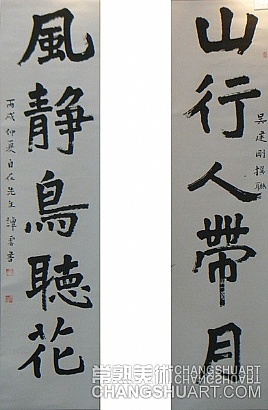 山行人帶月
吳建剛撰聯
風靜鳥聽花
丙戌仲夏自在先生譚雲書
常熟美術 CHANGSHUART
CHANGSHUART.COM